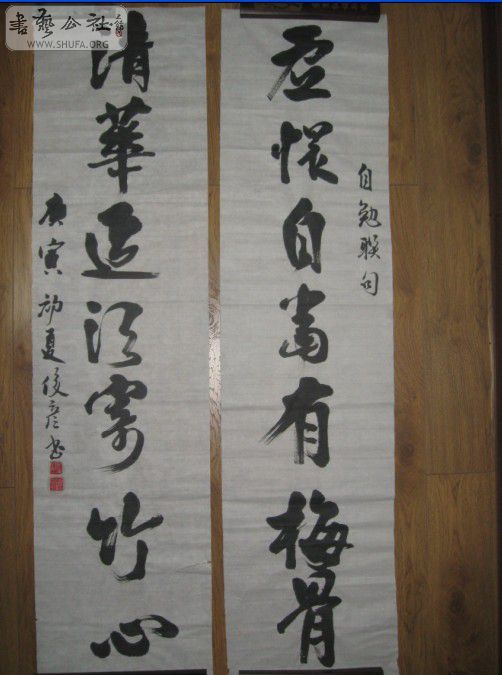 書藝公社
WWW.SHUFA.ORG
自勉聯句
虚懷自當有梅骨
清華須寄竹心
庚寅初夏俊彦书